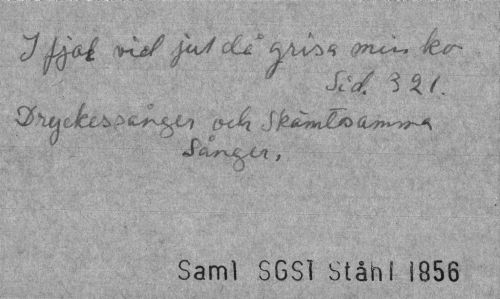 I fjol vid jul då grisa min ko
Sid. 321.
Dryckessånger och Skämtsamma
Sånger.
Saml SGS1 Ståhl 1856